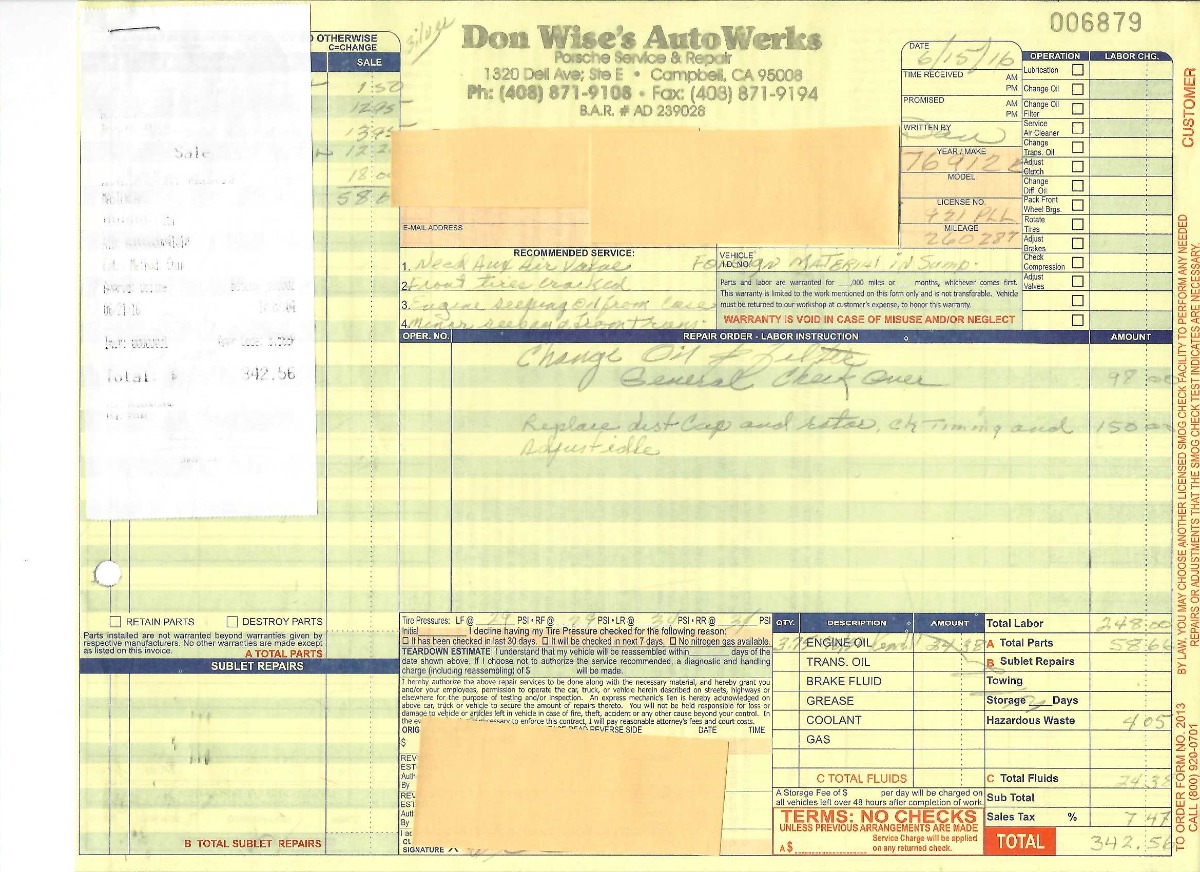 006879
Silver
Don Wise's AutoWerks
Porsche Service & Repair
1320 Dell Ave; Ste E • Campbell, CA 95008
Ph: (408) 871-9108 • Fax: (408) 871-9194
B.A.R. # AD 239028
OTHERWISE
C=CHANGE
SALE
1.50
12.95
13.95
18.00
58.6
Sale
Total: $ 342.56
DATE 6/15/16
TIME RECEIVED AM PM
PROMISED AM PM
WRITTEN BY Dan
YEAR / MAKE
76 912 E
MODEL
LICENSE NO.
921 PLL
MILEAGE
260287
OPERATION LABOR CHG.
Lubrication
Change Oil
Change Oil Filter
Service Air Cleaner
Change Trans. Oil
Adjust Clutch
Change Diff. Oil
Pack Front Wheel Brgs.
Rotate Tires
Adjust Brakes
Check Compression
Adjust Valves
CUSTOMER
E-MAIL ADDRESS
RECOMMENDED SERVICE:
1. Need Aux Air Valve
2. Front tires cracked
3. Engine seeping oil from case
4.
VEHICLE I.D. NO.
Foreign Material in Sump.
Parts and labor are warranted for ,000 miles or months, whichever comes first.
This warranty is limited to the work mentioned on this form only and is not transferable. Vehicle
must be returned to our workshop at customer's expense, to honor this warranty.
WARRANTY IS VOID IN CASE OF MISUSE AND/OR NEGLECT
OPER. NO. REPAIR ORDER - LABOR INSTRUCTION AMOUNT
Change Oil & filter
General Check Over 98.00
Replace dist Cap and rotor, ck Timing and 150.00
Adjust idle
RETAIN PARTS DESTROY PARTS
Parts installed are not warranted beyond warranties given by
respective manufacturers. No other warranties are made except
as listed on this invoice.
A TOTAL PARTS
SUBLET REPAIRS
B TOTAL SUBLET REPAIRS
Tire Pressures: LF @ 29 PSI • RF @ 29 PSI • LR @ PSI • RR @ PSI
Initial I decline having my Tire Pressure checked for the following reason:
It has been checked in last 30 days. It will be checked in next 7 days. No nitrogen gas available.
TEARDOWN ESTIMATE I understand that my vehicle will be reassembled within days of the
date shown above. If I choose not to authorize the service recommended, a diagnostic and handling
charge (including reassembling) of $ will be made.
I hereby authorize the above repair services to be done along with the necessary material, and hereby grant you
and/or your employees, permission to operate the car, truck, or vehicle herein described on streets, highways or
elsewhere for the purpose of testing and/or inspection. An express mechanic's lien is hereby acknowledged on
above car, truck or vehicle to secure the amount of repairs thereto. You will not be held responsible for loss or
damage to vehicle or articles left in vehicle in case of fire, theft, accident or any other cause beyond your control. In
to enforce this contract, I will pay reasonable attorney's fees and court costs.
ORIG READ REVERSE SIDE DATE TIME
$
REV
EST
Auth
By
REV
EST
Auth
By
SIGNATURE X
QTY. DESCRIPTION AMOUNT
ENGINE OIL 24.38
TRANS. OIL
BRAKE FLUID
GREASE
COOLANT
GAS
C TOTAL FLUIDS
A Storage Fee of $ per day will be charged on
all vehicles left over 48 hours after completion of work.
TERMS: NO CHECKS
UNLESS PREVIOUS ARRANGEMENTS ARE MADE
A $ Service Charge will be applied
on any returned check.
Total Labor 248.00
A Total Parts 58.66
B Sublet Repairs
Towing
Storage Days
Hazardous Waste 4.05
C Total Fluids 24.38
Sub Total
Sales Tax % 7.47
TOTAL 342.56
BY LAW, YOU MAY CHOOSE ANOTHER LICENSED SMOG CHECK FACILITY TO PERFORM ANY NEEDED
REPAIRS OR ADJUSTMENTS THAT THE SMOG CHECK TEST INDICATES ARE NECESSARY.
TO ORDER FORM NO. 2013
CALL (800) 920-0701